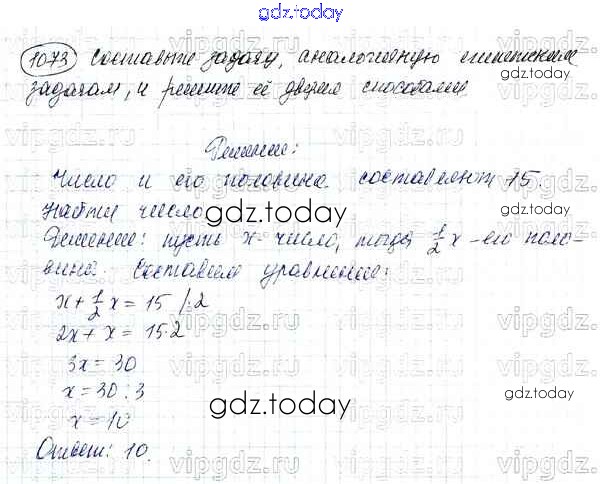 gdz.today
1073 Составьте задачу, аналогичную египетским
gdz.today
задачам, и решите её двумя способами
Решение:
Число и его половина составляют 15.
Найти число
gdz.today
Решение: пусть x-число, тогда 1/2 x - его поло-
вина. Составим уравнение:
x + 1/2 x = 15 /·2
2x + x = 15·2
3x = 30
x = 30 : 3
x = 10
gdz.today
Ответ: 10.
vipgdz.ru vipgdz.ru
vipgdz.ru vipgdz.ru
vipgdz.ru vipgdz.ru